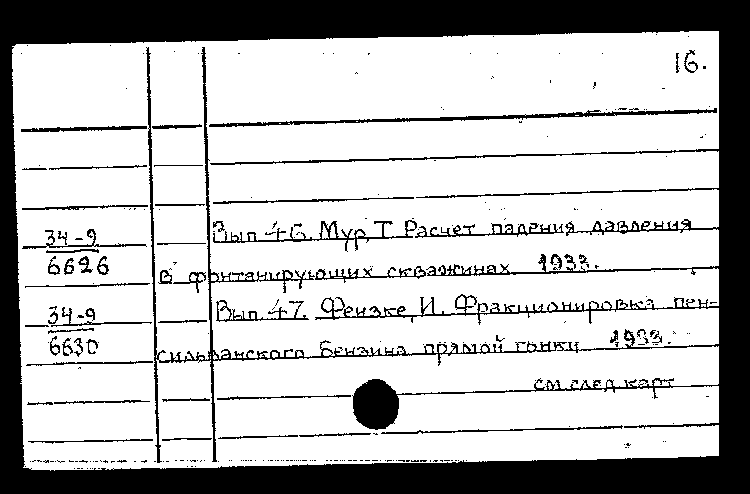 16.
34-9 Вып. 46. Мур, Т. Расчет падения давления
6626 в фонтанирующих скважинах. 1933.
34-9 Вып. 47. Фензке, И. Фракционировка пен-
6630 сильванского бензина прямой гонки 1933.
см. след. карт